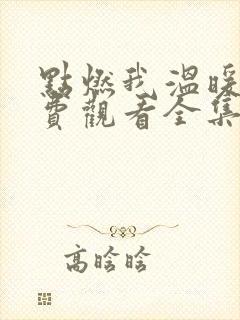 點燃我 溫暖
費觀看全集
高晗晗